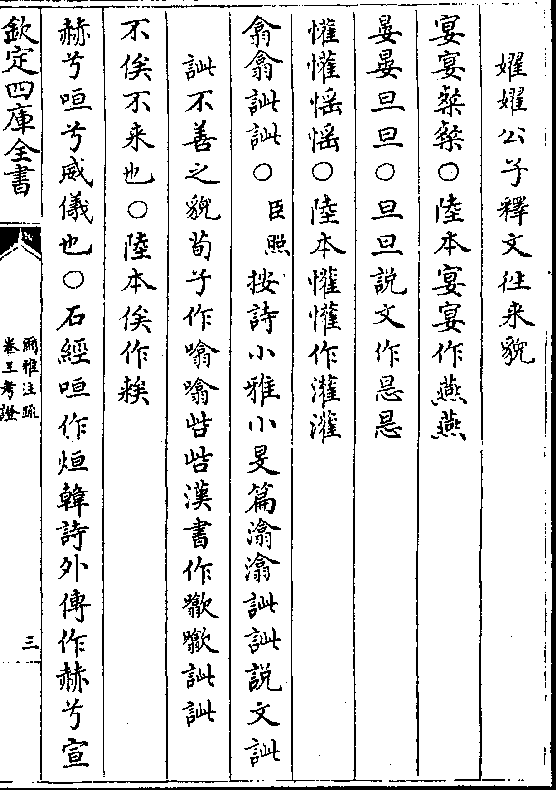 嬥嬥公子釋文徃来貌
宴宴粲粲○陸本宴宴作燕燕
晏晏旦旦○旦旦説文作悬悬
懽懽愮愮○陸本懽懽作灌灌
翕翕訿訿○臣照按詩小雅小旻篇潝潝訿訿説文訿
訿不善之貌荀子作噏噏呰呰漢書作歙歙訿訿
不俟不来也○陸本俟作䅆
赫兮咺兮威儀也○石經咺作烜韓詩外傳作赫兮宣
欽定四庫全書
爾雅注疏
卷三考證
三